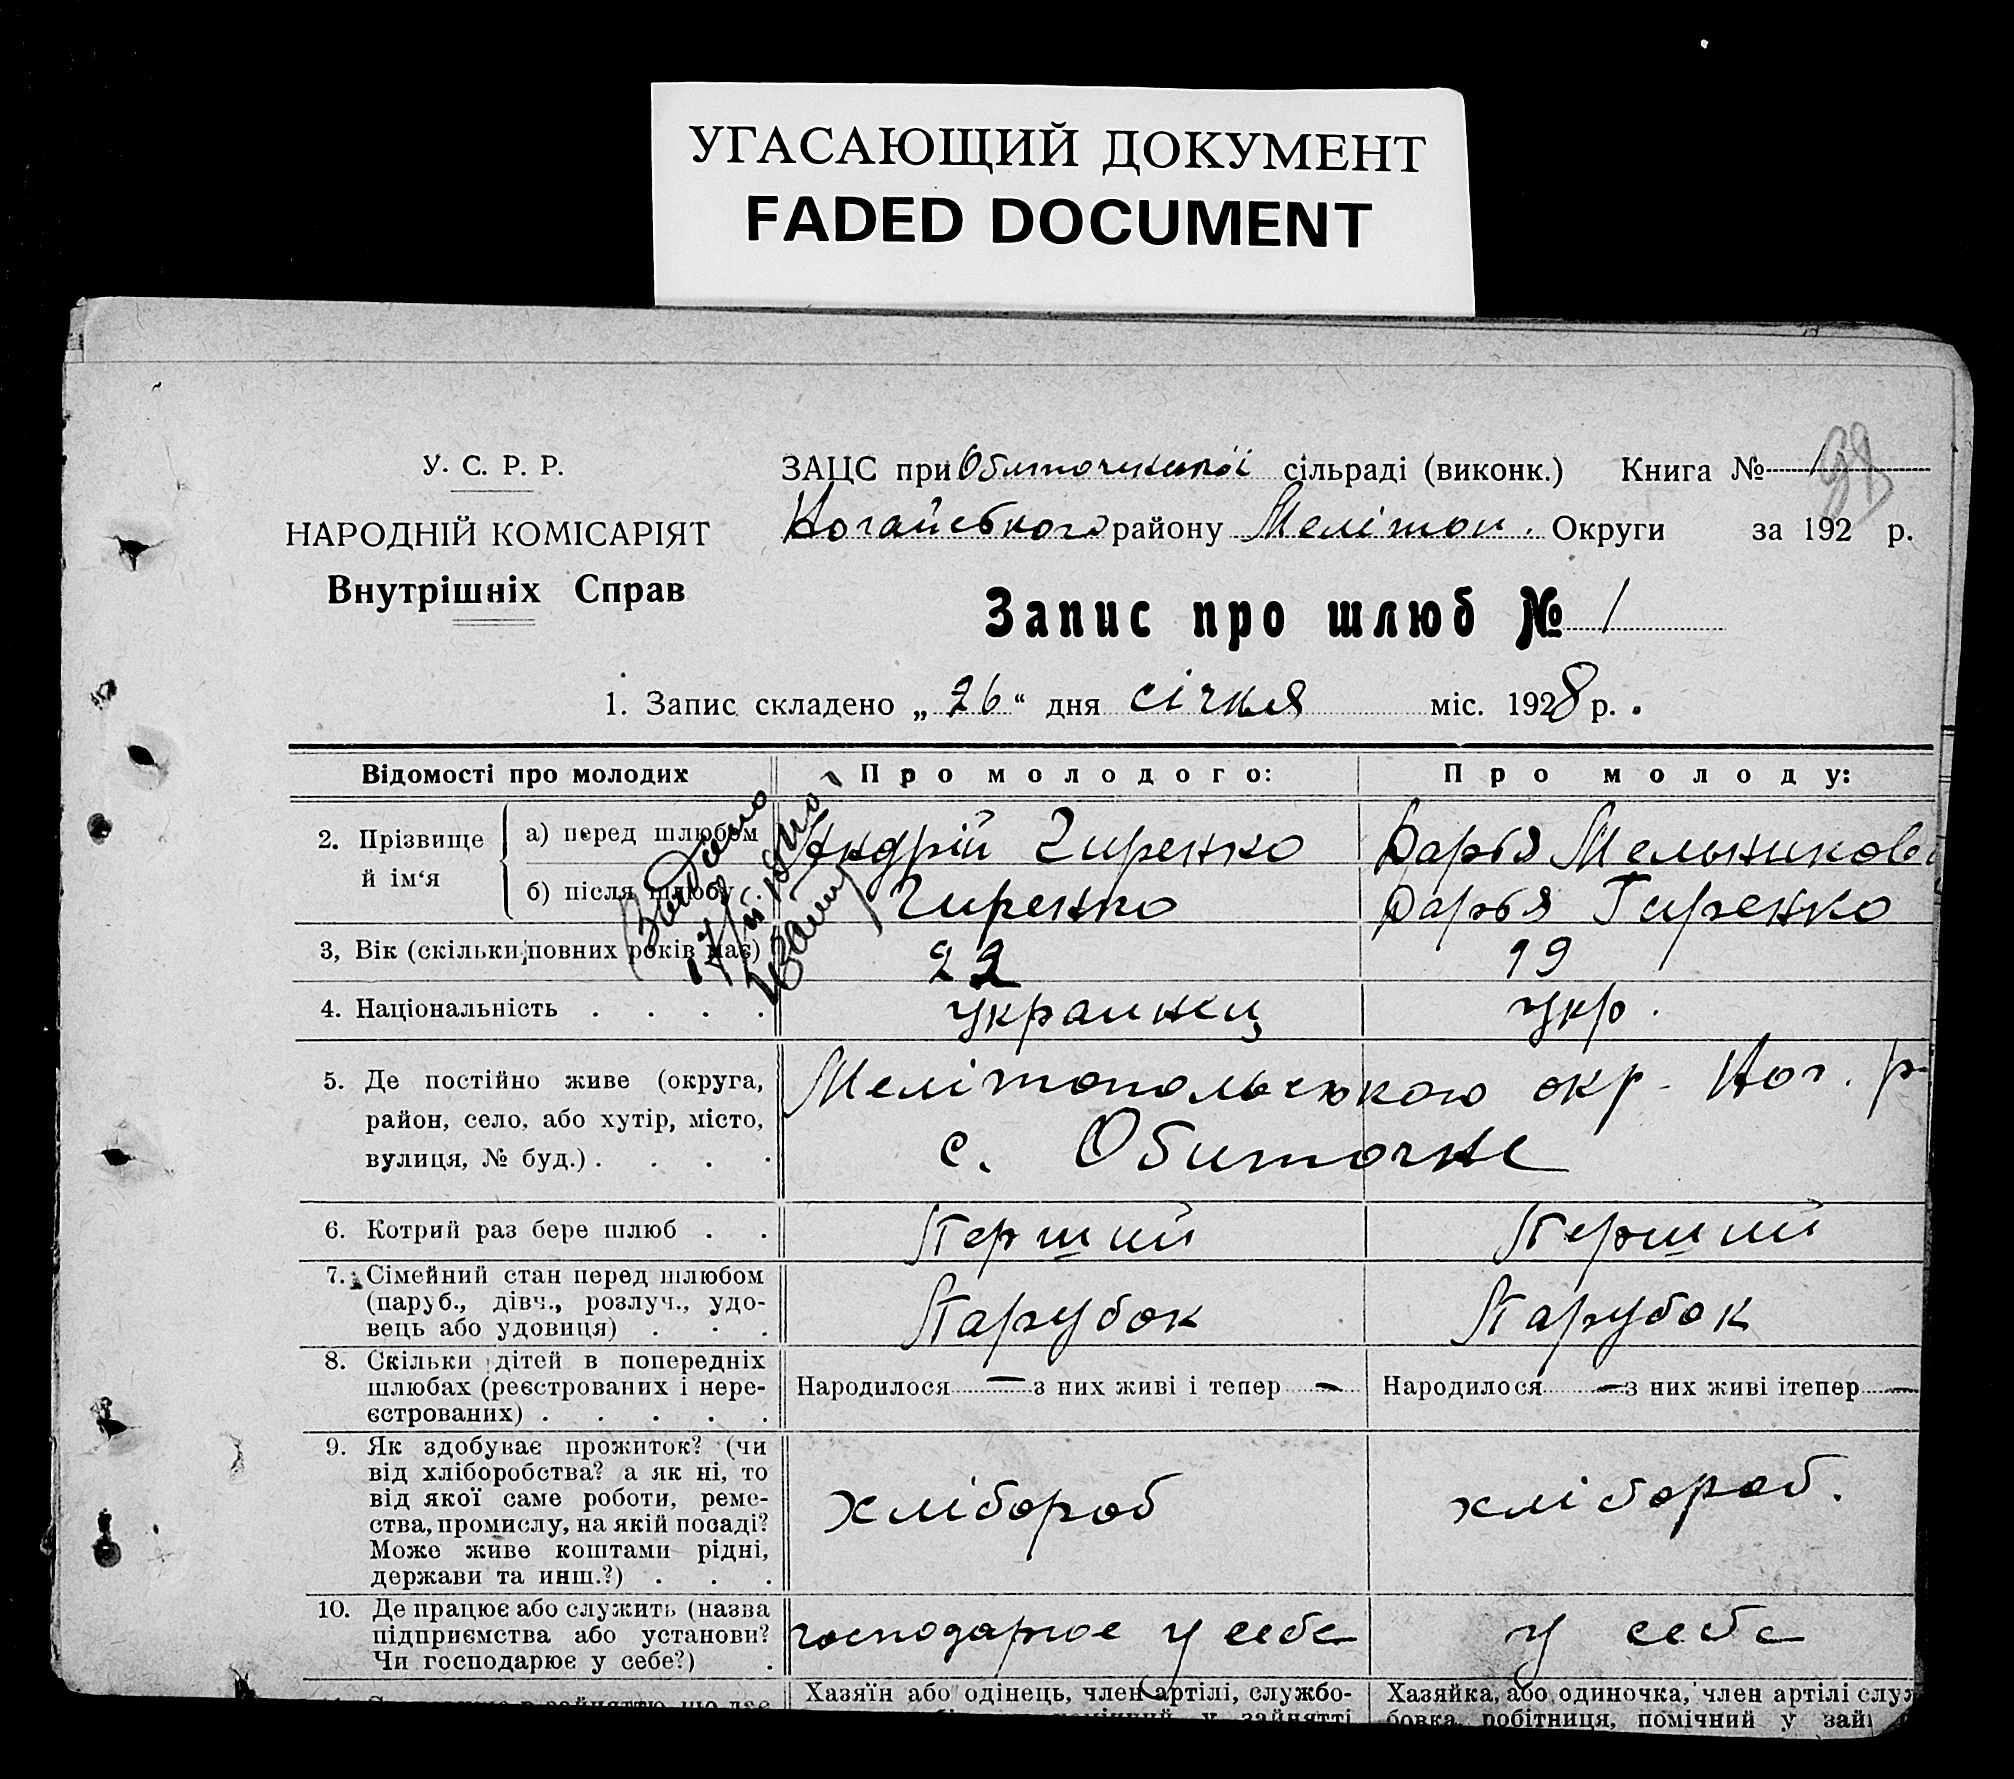 УГАСАЮЩИЙ ДОКУМЕНТ
FADED DOCUMENT
У. С. Р. Р.
НАРОДНІЙ КОМІСАРІЯТ
Внутрішніх Справ
ЗАЦС при Обиточенской сільраді (виконк.) Книга № 1
Ногайського району Мелітоп. Округи за 192 р.
Запис про шлюб № 1
1. Запис складено „26“ дня січня міс. 1928 р.
Відомості про молодих
Про молодого:
Про молоду:
2. Прізвище й ім‘я
а) перед шлюбом
Андрій Гиренко
Дарья Мельникова
б) після шлюбу
Гиренко
Дарья Гиренко
3, Вік (скільки повних років має)
22
19
4. Національність . . . .
украинец
укр.
5. Де постійно живе (округа,
район, село, або хутір, місто,
вулиця, № буд.) . . . .
Мелітопольського окр. Ног. р-
с. Обиточне
6. Котрий раз бере шлюб . .
Перший
Перший
7. Сімейний стан перед шлюбом
(паруб., дівч., розлуч., удо-
вець або удовиця) . . .
Парубок
Парубок
8. Скільки дітей в попередніх
шлюбах (реєстрованих і нере-
єстрованих) . . . . .
Народилося — з них живі і тепер —
Народилося — з них живі ітепер —
9. Як здобуває прожиток? (чи
від хліборобства? а як ні, то
від якої саме роботи, реме-
ства, промислу, на якій посаді?
Може живе коштами рідні,
держави та инш.?) . . .
хлібороб
хлібороб.
10. Де працює або служить (назва
підприємства або установи?
Чи господарює у себе?) .
господарює у себе
у себе
Хазяїн або одінець, член артілі, службо-
помічний у зайнятті
Хазяйка, або одиночка, член артілі служ
бовка, робітниця, помічний у зай